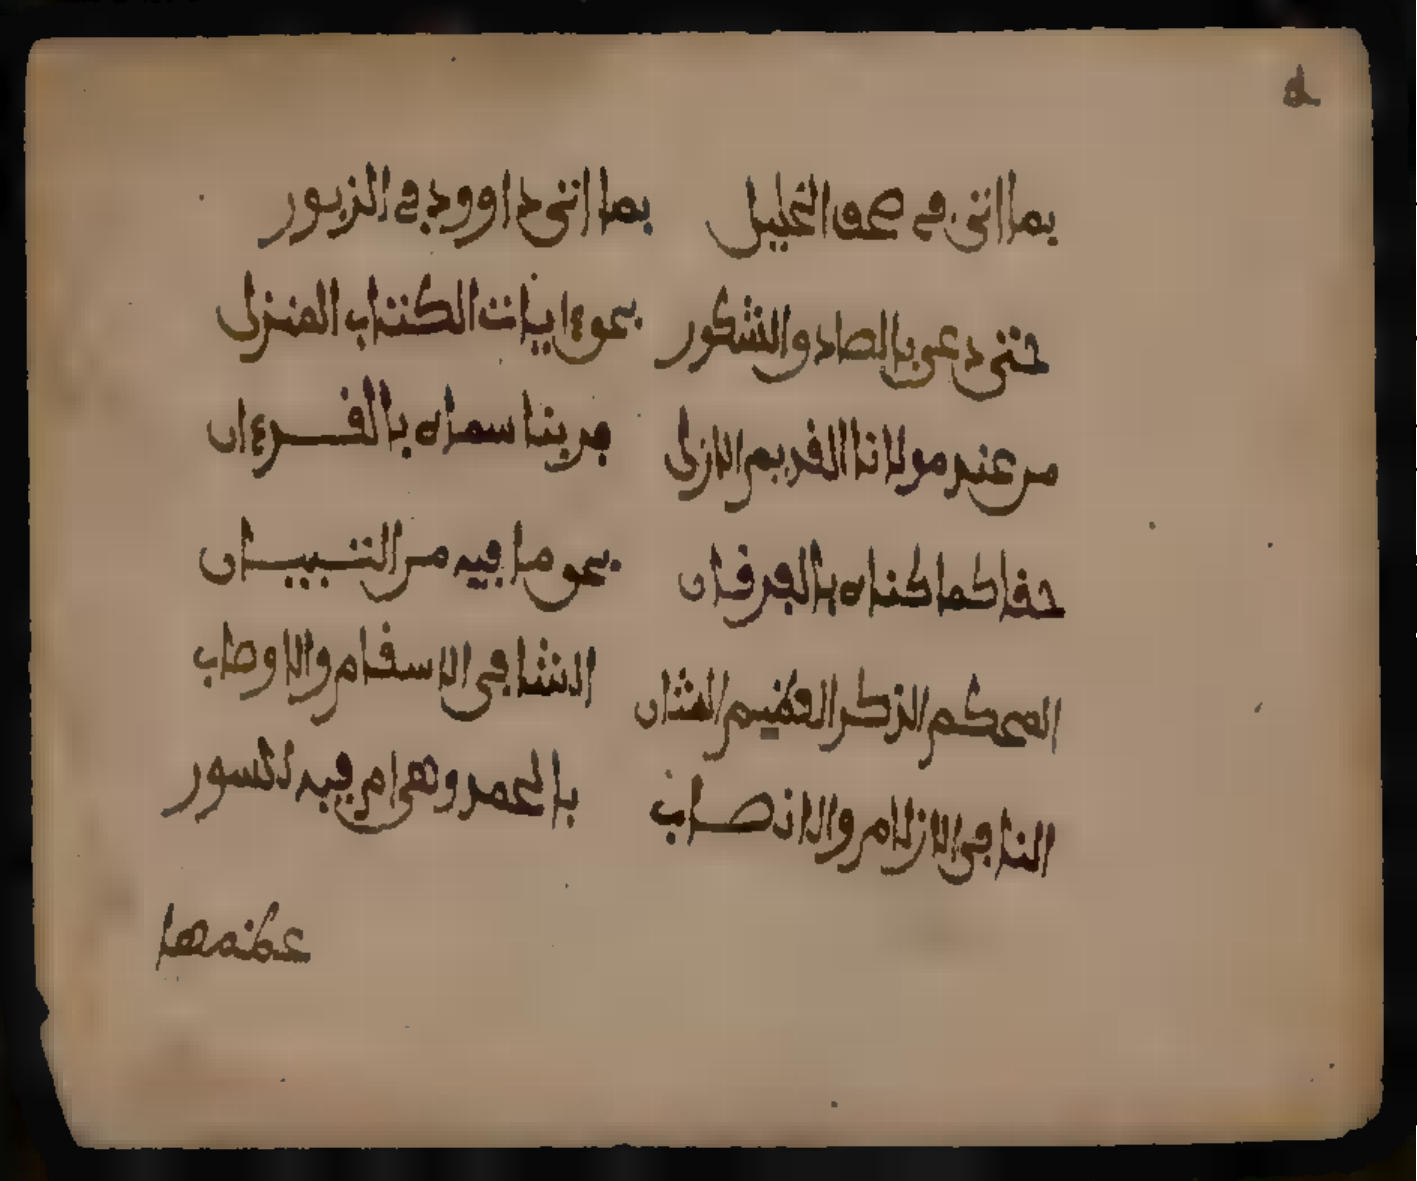 بما اتى في صحف الخليل بما اتى داوود في الزبور
حتى دعي بالصاد والشكور بحق ءايات الكتاب المنزل
من عند مولانا القديم الازلي من ربنا سماه بالقرءان
حقا كما كناه بالفرقان بحق ما فيه من التبيان
المحكم الذكر العظيم الشان الشافي الاسقام والاوصاب
النافي الازلام والانصاب بالحمد وهي ام فيه للسور
عظمها